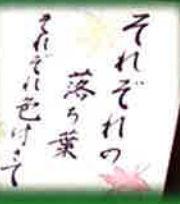 それぞれの
落ち葉
それぞれ色付きて